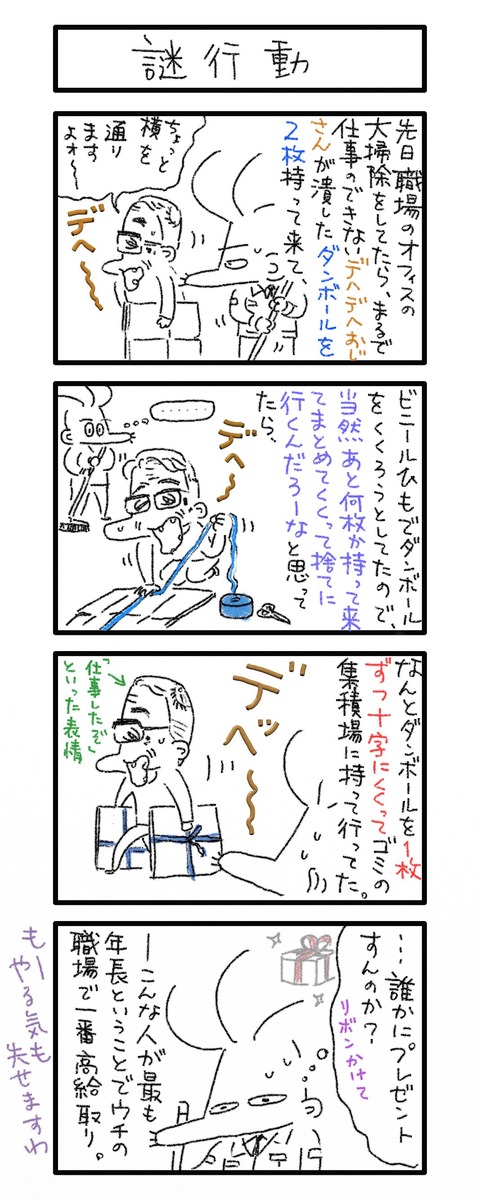 謎行動
先日職場のオフィスの
大掃除をしてたら、まるで
仕事のできないデヘデヘおじ
さんが潰したダンボールを
2枚持って来て、
ちょっと
横を
通り
ます
よォ〜
デヘ〜
ビニールひもでダンボール
をくくろうとしてたので、
当然あと何枚か持って来
てまとめてくくって捨てに
行くんだろーなと思って
たら、
デヘ〜
なんとダンボールを1枚
ずつ十字にくくってゴミの
集積場に持って行ってた。
デヘ〜ッ
「仕事したぞ」
といった表情
…誰かにプレゼント
すんのか?
リボンかけて
―こんな人が最も
年長ということでウチの
職場で一番高給取り。
もーやる気も
失せますわ